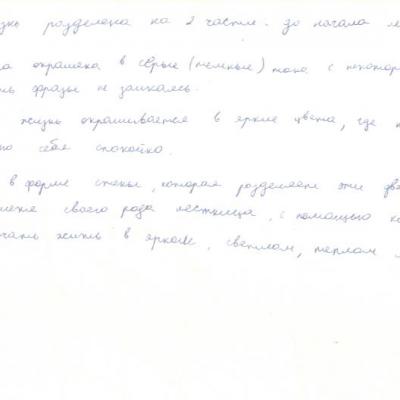 знь разделена на 2 части. до начала
окрашена в серые (темные) тона с
фразы не заикаясь.
жизнь окрашивается в яркие цвета, где
себя спокойно.
в форме стены, которая разделяет эти
своего рода лестница, с помощью
жить в ярком, светлом, теплом